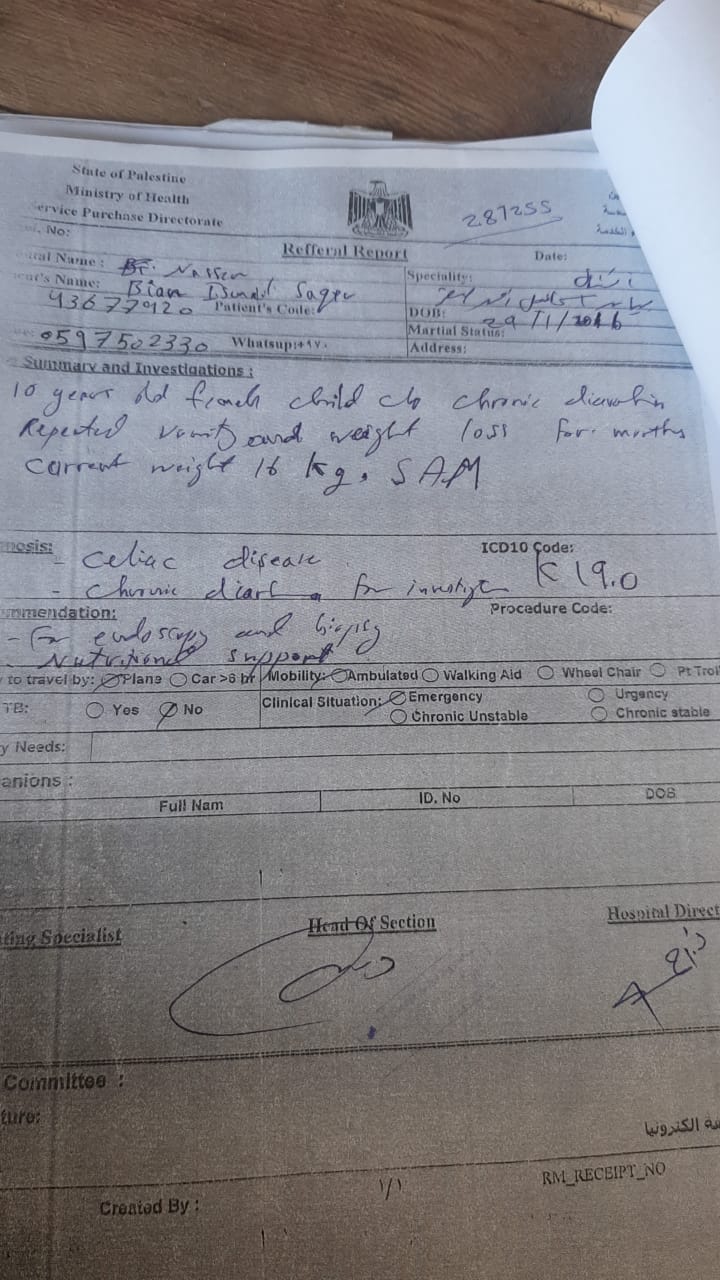 State of Palestine
Ministry of Health
ervice Purchase Directorate
287255
No:
Refferal Report
Date:
Name: Nasser
Speciality:
Name: Bian Saqer
93677920 Patient's Code:
DOB: 29/1/2016
Martial Status:
0597502330 Whatsup:+97.
Address:
Summary and Investigations :
10 years old female child c/o chronic diarrhea
Repeated vomit and weight loss for months
current weight 16 kg. SAM
nosis:
- celiac disease
ICD10 Code:
- Chronic for K 19.0
mmendation:
Procedure Code:
- For endoscopy and biopsy
- Nutritional support
to travel by: Plane Car >6 hr Mobility: Ambulated Walking Aid Wheel Chair Pt Trol
TB: Yes No Clinical Situation: Emergency Urgency
Chronic Unstable Chronic stable
y Needs:
anions :
Full Nam ID. No DOB
ting Specialist Head Of Section Hospital Direct
Committee :
ture:
الكترونيا
١/١
RM_RECEIPT_NO
Created By :